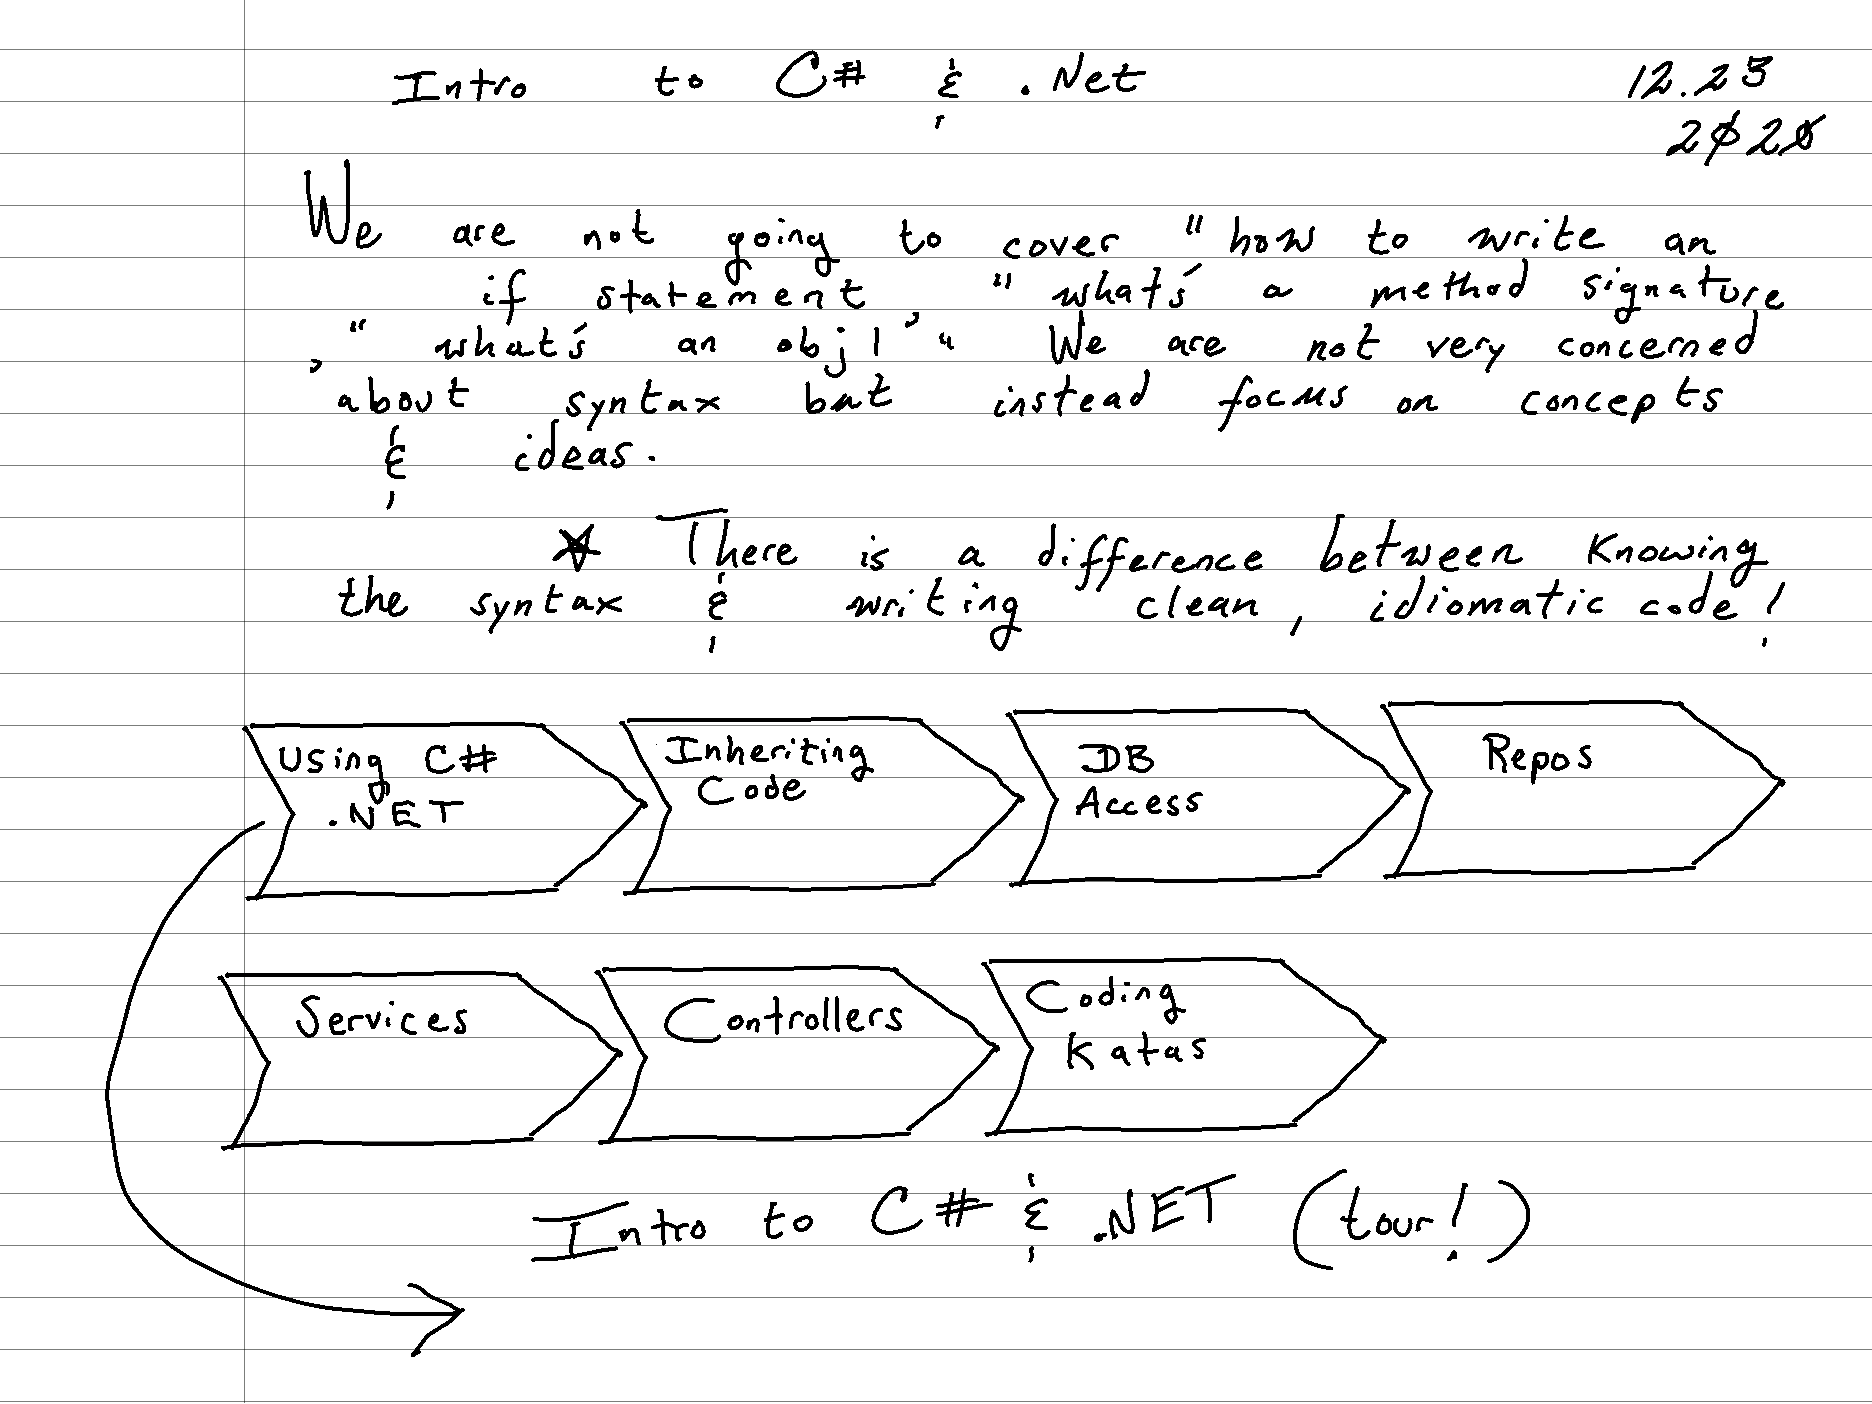 Intro to C# & .Net
12.23
2020
We are not going to cover "how to write an
if statement " what's a method signature
, " what's an obj1 ' " We are not very concerned
about syntax but instead focus on concepts
& ideas.
★ There is a difference between Knowing
the syntax & writing clean, idiomatic code!
Using C#
.NET
Inheriting
Code
DB
Access
Repos
Services
Controllers
Coding
Katas
Intro to C# & .NET (tour!)